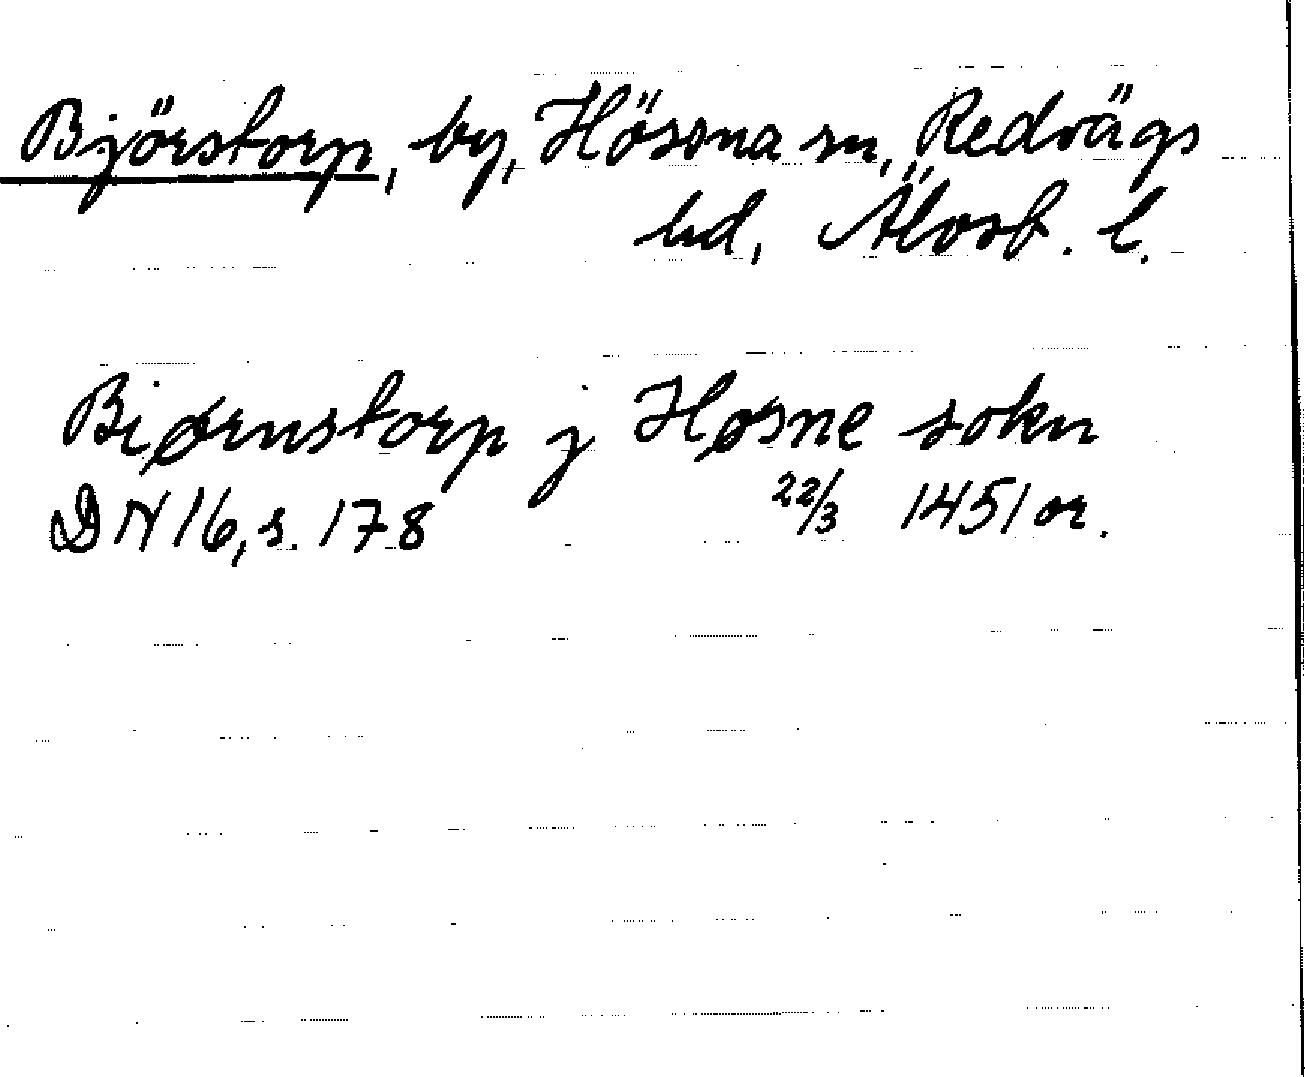 Björstorp, by, Hössna sn, Redvägs
hd, Älvsb. l.
Biørnstorp j Høsne sokn
DN 16, s. 178 22/3 1451 or.